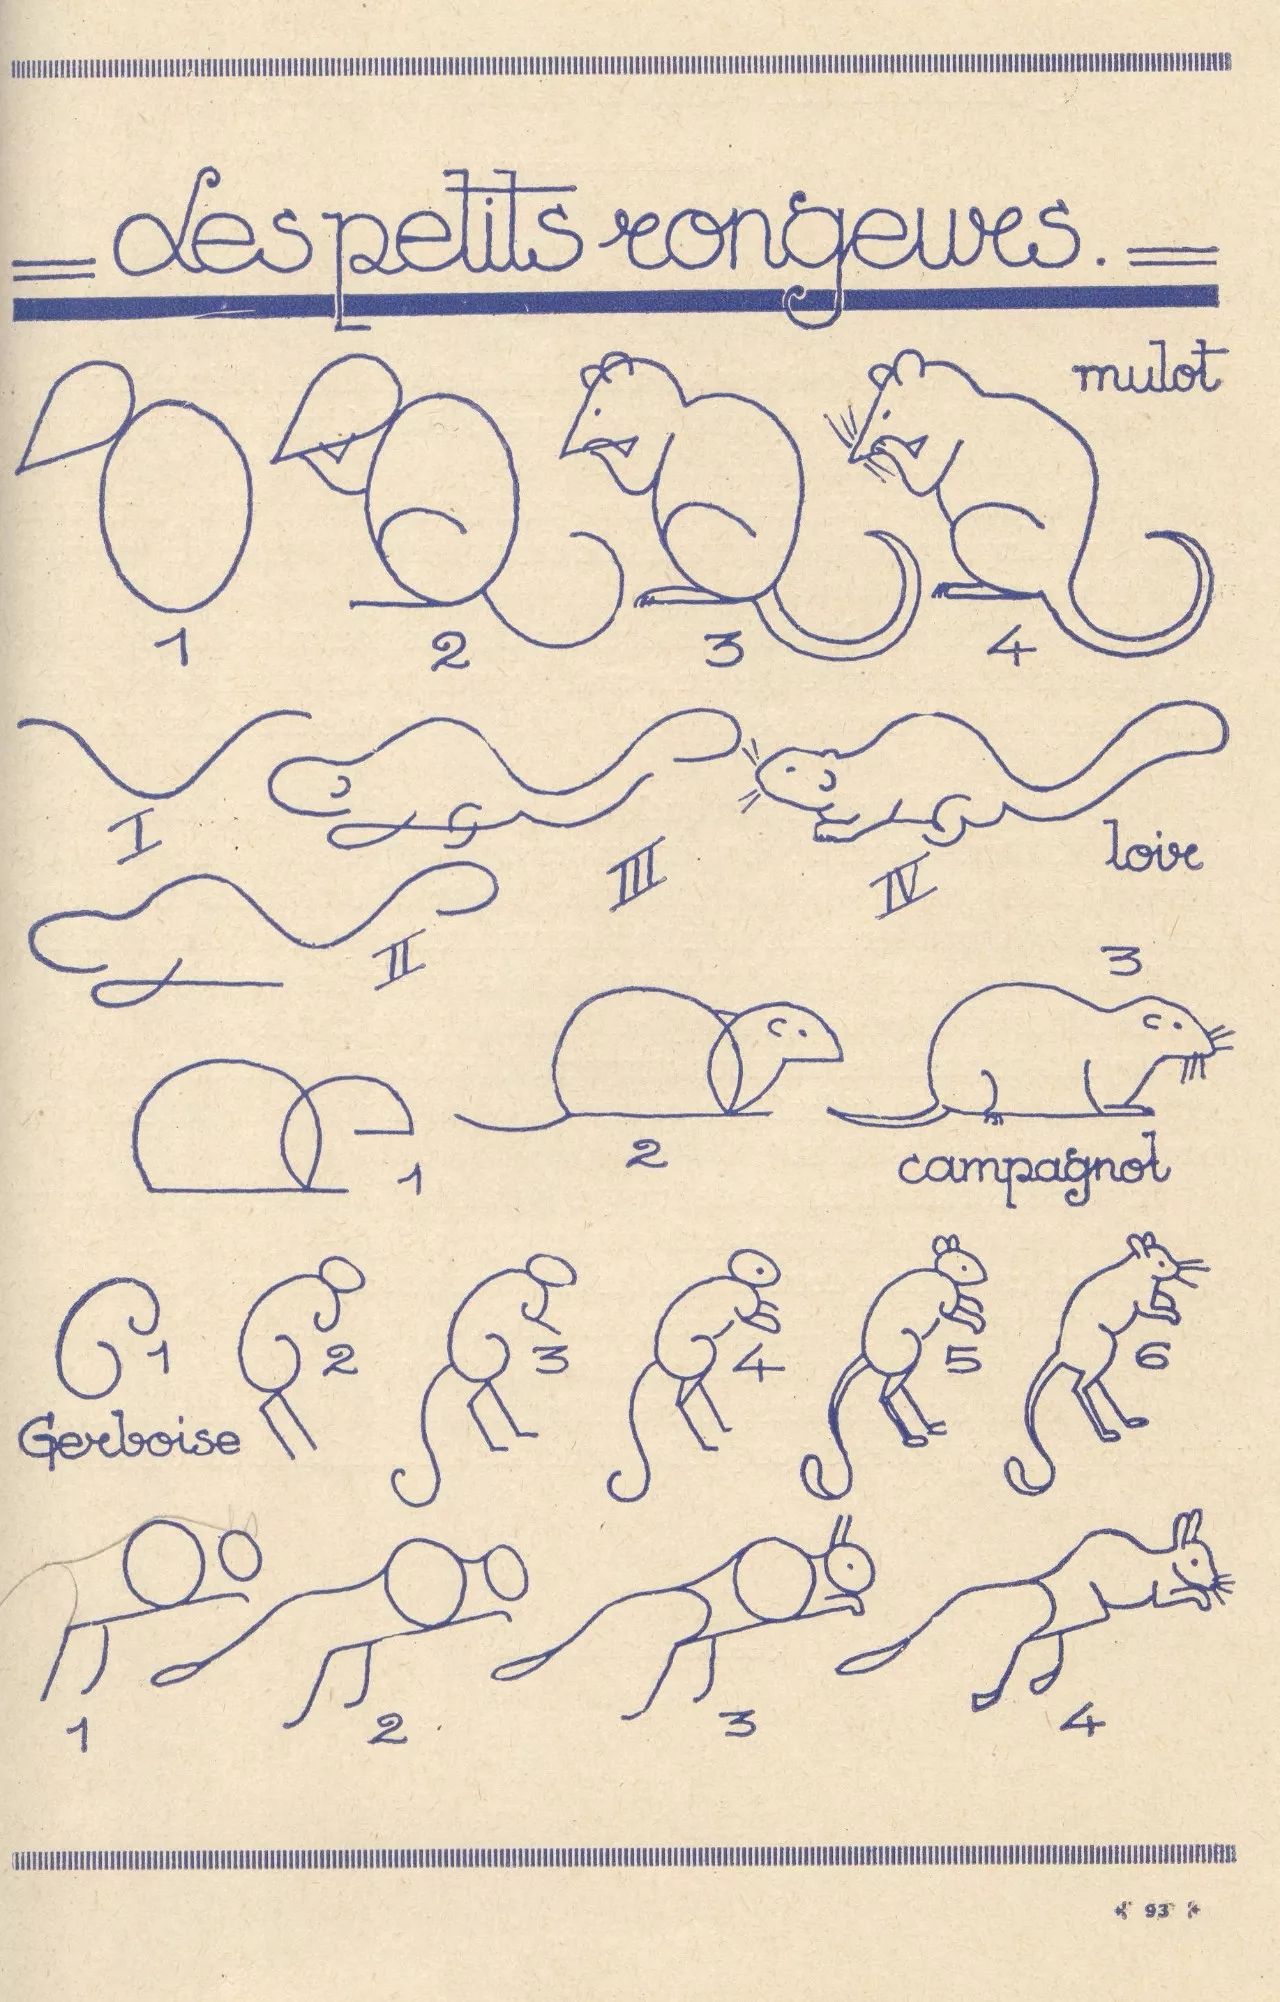 des petits rongeurs.
mulot
1 2 3 4
I
III
IV
loir
II
3
1
2
campagnol
1 2 3 4 5 6
Gerboise
1 2 3 4
93